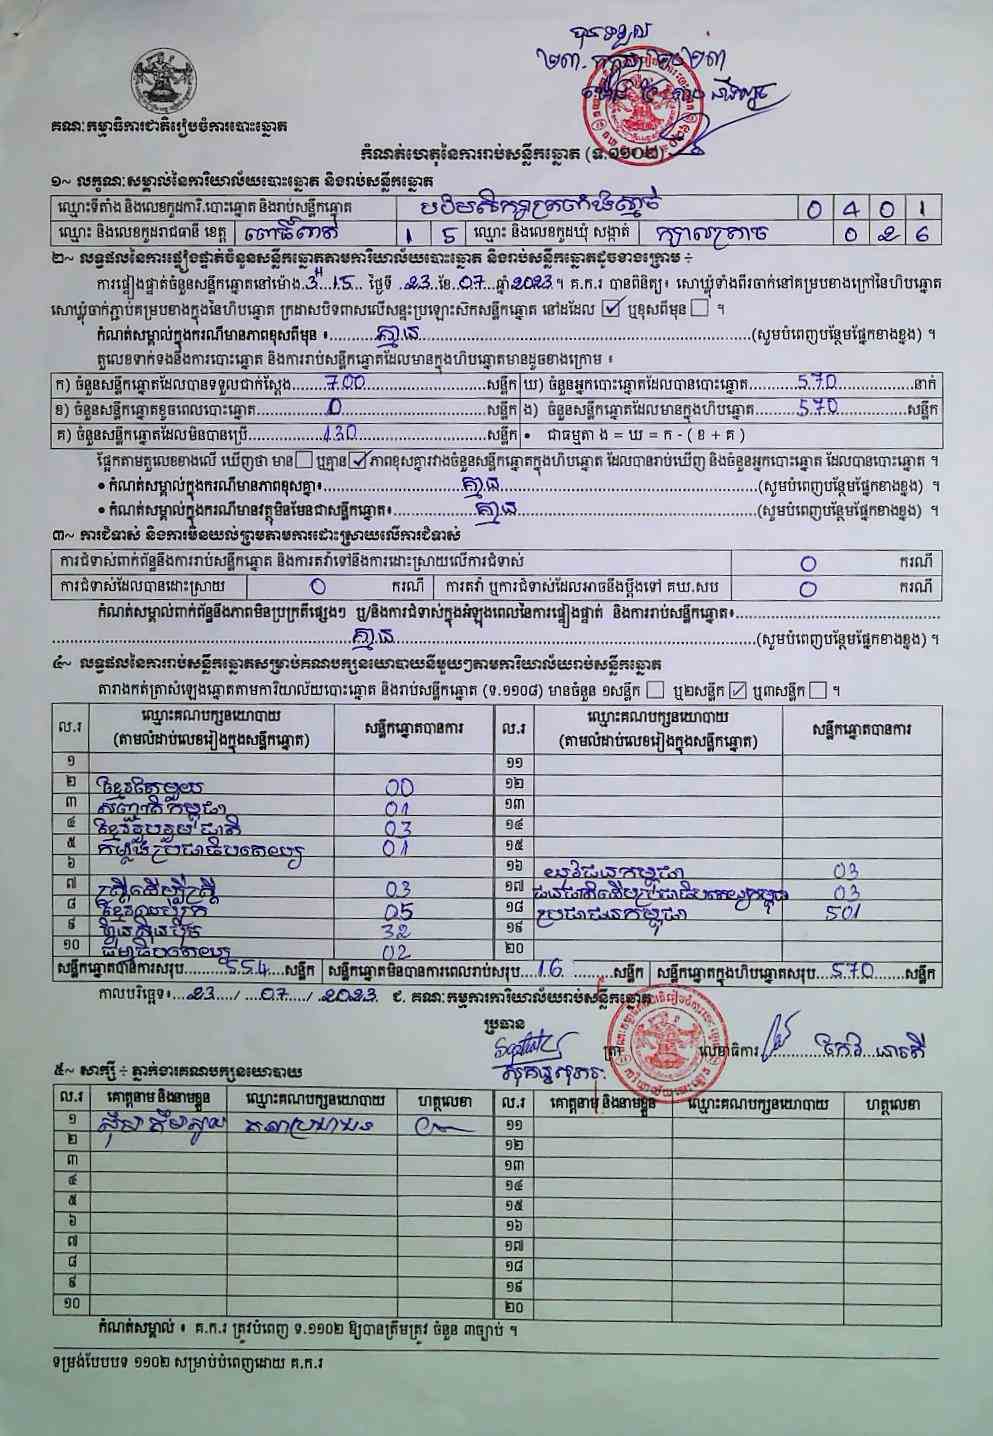 បានទទួល
គណៈកម្មាធិការជាតិរៀបចំការបោះឆ្នោត
កំណត់ហេតុនៃការរាប់សន្លឹកឆ្នោត (ទ.១១០២)
១~ លក្ខណៈសម្គាល់នៃការិយាល័យបោះឆ្នោត និងរាប់សន្លឹកឆ្នោត
ឈ្មោះទីតាំង និងលេខកូដការិ.បោះឆ្នោត និងរាប់សន្លឹកឆ្នោត 0 4 0 1
ឈ្មោះ និងលេខកូដរាជធានី ខេត្ត ពោធិ៍សាត់ 1 5 ឈ្មោះ និងលេខកូដឃុំ សង្កាត់ 0 2 6
២~ លទ្ធផលនៃការផ្ទៀងផ្ទាត់ចំនួនសន្លឹកឆ្នោតតាមការិយាល័យបោះឆ្នោត និងរាប់សន្លឹកឆ្នោតដូចខាងក្រោម ៖
ការផ្ទៀងផ្ទាត់ចំនួនសន្លឹកឆ្នោតនៅម៉ោង 3 15 ថ្ងៃទី 23 ខែ 07 ឆ្នាំ 2023 ។ គ.ក.រ បានពិនិត្យ៖ សោឃ្លុំទាំងពីរចាក់នៅគម្របខាងក្រៅនៃហិបឆ្នោត
សោឃ្លុំចាក់ភ្ជាប់គម្របខាងក្នុងនៃហិបឆ្នោត ក្រដាសបិទពាសលើសន្ទះប្រឡោះសិកសន្លឹកឆ្នោត នៅដដែល ☑ ឬខុសពីមុន ☐ ។
កំណត់សម្គាល់ក្នុងករណីមានភាពខុសពីមុន ៖ គ្មាន (សូមបំពេញបន្ថែមផ្នែកខាងខ្នង) ។
តួលេខទាក់ទងនឹងការបោះឆ្នោត និងការរាប់សន្លឹកឆ្នោតដែលមានក្នុងហិបឆ្នោតមានដូចខាងក្រោម ៖
ក) ចំនួនសន្លឹកឆ្នោតដែលបានទទួលជាក់ស្តែង 700 សន្លឹក ឃ) ចំនួនអ្នកបោះឆ្នោតដែលបានបោះឆ្នោត 570 នាក់
ខ) ចំនួនសន្លឹកឆ្នោតខូចពេលបោះឆ្នោត 0 សន្លឹក ង) ចំនួនសន្លឹកឆ្នោតដែលមានក្នុងហិបឆ្នោត 570 សន្លឹក
គ) ចំនួនសន្លឹកឆ្នោតដែលមិនបានប្រើ 130 សន្លឹក • ជាធម្មតា ង = ឃ = ក - ( ខ + គ )
ផ្អែកតាមតួលេខខាងលើ ឃើញថា មាន ☐ ឬគ្មាន ☑ ភាពខុសគ្នារវាងចំនួនសន្លឹកឆ្នោតក្នុងហិបឆ្នោត ដែលបានរាប់ឃើញ និងចំនួនអ្នកបោះឆ្នោត ដែលបានបោះឆ្នោត ។
• កំណត់សម្គាល់ក្នុងករណីមានភាពខុសគ្នា៖ គ្មាន (សូមបំពេញបន្ថែមផ្នែកខាងខ្នង) ។
• កំណត់សម្គាល់ក្នុងករណីមានវត្ថុមិនមែនជាសន្លឹកឆ្នោត៖ គ្មាន (សូមបំពេញបន្ថែមផ្នែកខាងខ្នង) ។
៣~ ការជំទាស់ និងការមិនយល់ព្រមតាមការដោះស្រាយលើការជំទាស់
ការជំទាស់ពាក់ព័ន្ធនឹងការរាប់សន្លឹកឆ្នោត និងការតវ៉ាទៅនឹងការដោះស្រាយលើការជំទាស់ 0 ករណី
ការជំទាស់ដែលបានដោះស្រាយ 0 ករណី ការតវ៉ា ឬការជំទាស់ដែលអាចនឹងប្តឹងទៅ គឃ.សប 0 ករណី
កំណត់សម្គាល់ពាក់ព័ន្ធនឹងភាពមិនប្រក្រតីផ្សេងៗ ឬ/និងការជំទាស់ក្នុងអំឡុងពេលនៃការផ្ទៀងផ្ទាត់ និងការរាប់សន្លឹកឆ្នោត៖
គ្មាន (សូមបំពេញបន្ថែមផ្នែកខាងខ្នង) ។
៤~ លទ្ធផលនៃការរាប់សន្លឹកឆ្នោតសម្រាប់គណបក្សនយោបាយនីមួយៗតាមការិយាល័យរាប់សន្លឹកឆ្នោត
តារាងកត់ត្រាសំឡេងឆ្នោតតាមការិយាល័យបោះឆ្នោត និងរាប់សន្លឹកឆ្នោត (ទ.១១០៨) មានចំនួន ១សន្លឹក ☐ ឬ២សន្លឹក ☑ ឬ៣សន្លឹក ☐ ។
ល.រ ឈ្មោះគណបក្សនយោបាយ (តាមលំដាប់លេខរៀងក្នុងសន្លឹកឆ្នោត) សន្លឹកឆ្នោតបានការ ល.រ ឈ្មោះគណបក្សនយោបាយ (តាមលំដាប់លេខរៀងក្នុងសន្លឹកឆ្នោត) សន្លឹកឆ្នោតបានការ
១ ១១
២ ខ្មែរតែមួយ 00 ១២
៣ សញ្ជាតិកម្ពុជា 01 ១៣
៤ ខ្មែររួបរួមជាតិ 03 ១៤
៥ កម្លាំងប្រជាធិបតេយ្យ 01 ១៥
៦ ១៦ យុវជនកម្ពុជា 03
៧ ស្ត្រីដើម្បីស្ត្រី 03 ១៧ ជនជាតិដើមប្រជាធិបតេយ្យកម្ពុជា 03
៨ ខ្មែរអភិរក្ស 05 ១៨ ប្រជាជនកម្ពុជា 501
៩ ហ្វ៊ុនស៊ិនប៉ិច 32 ១៩
១០ ធម្មាធិបតេយ្យ 02 ២០
សន្លឹកឆ្នោតបានការសរុប 554 សន្លឹក សន្លឹកឆ្នោតមិនបានការពេលរាប់សរុប 16 សន្លឹក សន្លឹកឆ្នោតក្នុងហិបឆ្នោតសរុប 570 សន្លឹក
កាលបរិច្ឆេទ៖ 23 / 07 / 2023 ជ. គណៈកម្មការការិយាល័យរាប់សន្លឹកឆ្នោត
ប្រធាន
ត្រា លេខាធិការ
៥~ សាក្សី ៖ ភ្នាក់ងារគណបក្សនយោបាយ
ល.រ គោត្តនាម និងនាមខ្លួន ឈ្មោះគណបក្សនយោបាយ ហត្ថលេខា ល.រ គោត្តនាម និងនាមខ្លួន ឈ្មោះគណបក្សនយោបាយ ហត្ថលេខា
១ ១១
២ ១២
៣ ១៣
៤ ១៤
៥ ១៥
៦ ១៦
៧ ១៧
៨ ១៨
៩ ១៩
១០ ២០
កំណត់សម្គាល់ ៖ គ.ក.រ ត្រូវបំពេញ ទ.១១០២ ឱ្យបានត្រឹមត្រូវ ចំនួន ៣ច្បាប់ ។
ទម្រង់បែបបទ ១១០២ សម្រាប់បំពេញដោយ គ.ក.រ